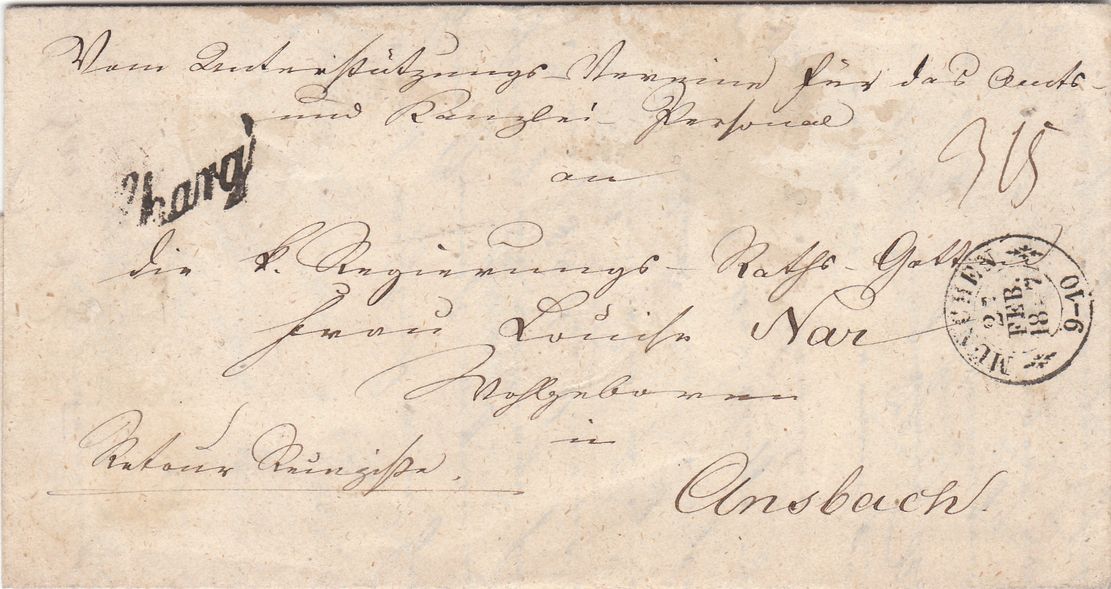 Vom Unterstützungs-Vereine für das Amts-
und Kanzlei-Personal
an
die k. Regierungs-Raths-Gatt
Frau Louise Nar
Wohlgeboren
in
Ansbach
Retour Recepisse.
Charg
MÜNCHEN
27
FEB.
1847
9-10